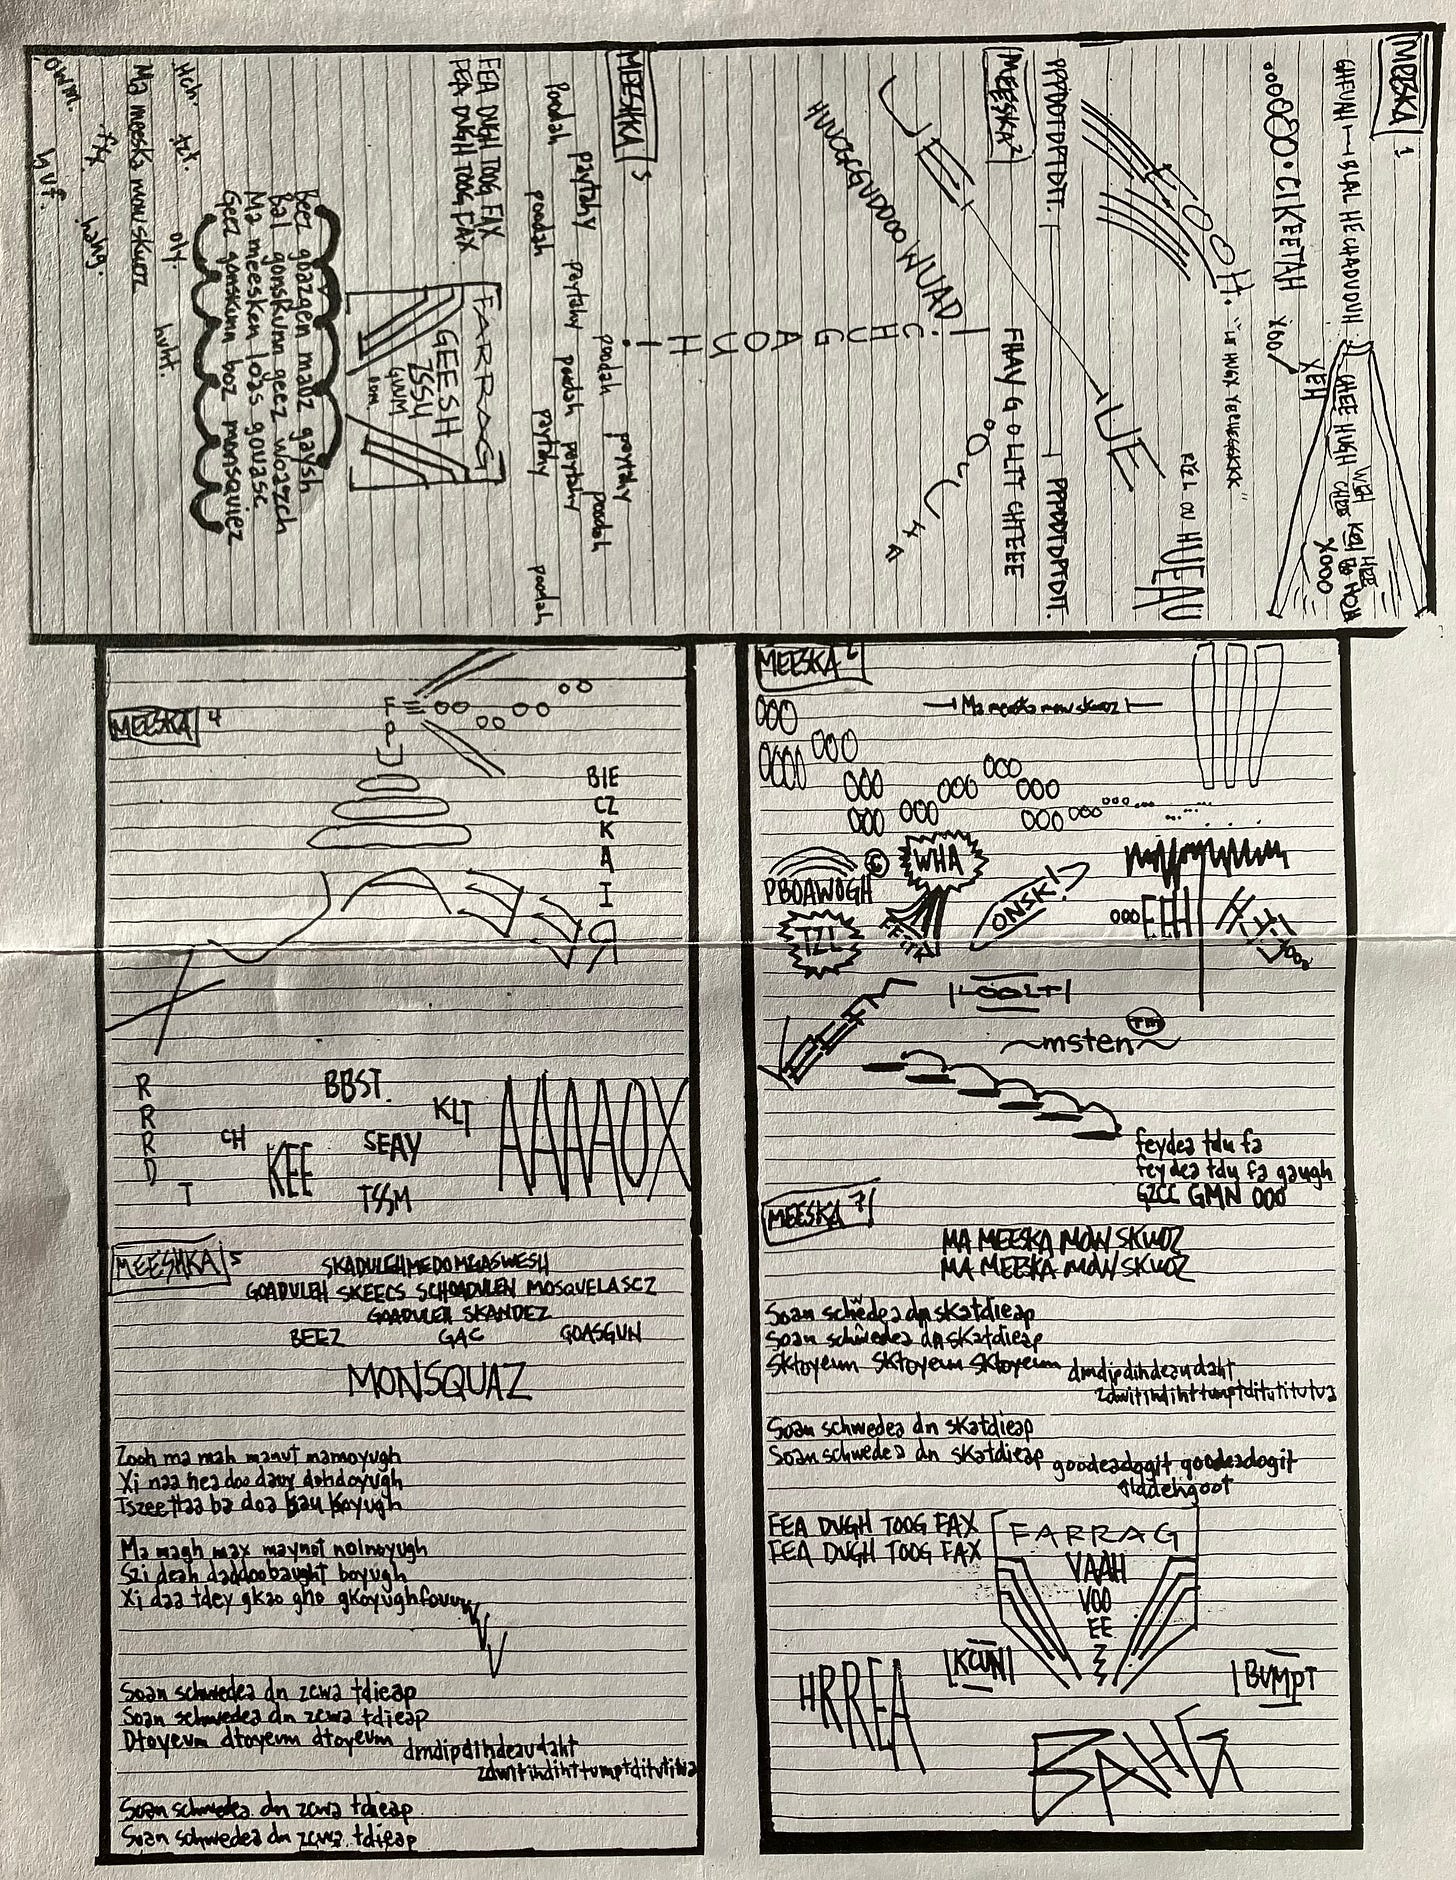 MEESKA 1
BLAL HECHADUDUH
CHEE HUGH CHEE
WEH
HEE
XOOO
XEH
XOO
OOOH.
RIZL OU HUEAU
PPPDDTDPTDTT.
PPPDDTDPTDTT.
MEESKA 2
JEE
UE
FHAY G O LLTT CHTEEE
CHUGAOUHI
MEESHKA 3
paytahy
paytahy
paytahy
paytahy
paytahy
poodah
poodah
poodah
poodah
poodah
poodah
FEA DUGH TOOG FAX
FEA DUGH TOOG FAX
FARRAG
GEESH
ZSSU
GUUM
DOM.
Beez goazgen maoz gaysh
Bal gonskunn geez woazch
Ma meesken loas govase
Geez gonskunn boz monsquiez
Hah.
tzt.
oly.
huht.
Ma meeska mow skwoz
hahg.
owm.
huf.
MEESKA 4
BIE
CZ
K
A
I
Я
R
R
R
D
T
CH
KEE
BBST.
SEAY
TSSM
KLT
AAAAOX
MEESHKA 5
SKADULEHMEDOMGASWESH
GOADULEH SKEECS SCHOADULEN MOSQUELASCZ
GOADULEH SKANDEZ
BEEZ GAC GOASGUN
MONSQUAZ
Zooh ma mah manut mamoyugh
Xi naa hea doo dauy dohdoyugh
Iszee ttaa ba doa kau koyugh
Ma magh max maynot nolnoyugh
Szi deah daddoobaught boyugh
Xi daa tdey gkao gho gkoyughfouuu
Soan schwedea dn zcwa tdieap
Soan schwedea dn zcwa tdieap
Dtoyeum dtoyeum dtoyeum dmdipdihdeaudaht
zdwitihdihttumptditutitutua
Soan schwedea dn zcwa tdieap
Soan schwedea dn zcwa tdieap
MEESKA 6
Ma meeska mow skwoz
OOO
OOO
OOOO
OOO
OOO
OOO
OOO
OOO
OOO
OOO
PBOAWOGH ©
WHA
TZL
ONSK!
OOO EEH
LOOLT
~msten~ TM
feydea tdu fa
feydea tdu fa gaugh
GZCC GMN OOO
MEESKA 7
MA MEESKA MOW SKWOZ
MA MEESKA MOW SKWOZ
Soan schwedea dn skatdieap
Soan schwedea dn skatdieap
Sktoyeum sktoyeum sktoyeum dmdipdihdeaudaht
zdwitihdihttumptditutitutua
Soan schwedea dn skatdieap
Soan schwedea dn skatdieap goodeadogit goodeadogit
FEA DUGH TOOG FAX
FEA DUGH TOOG FAX
FARRAG
VAAH
VOO
EE
Z
HRREA
KCUN
BUMPT
BAHG